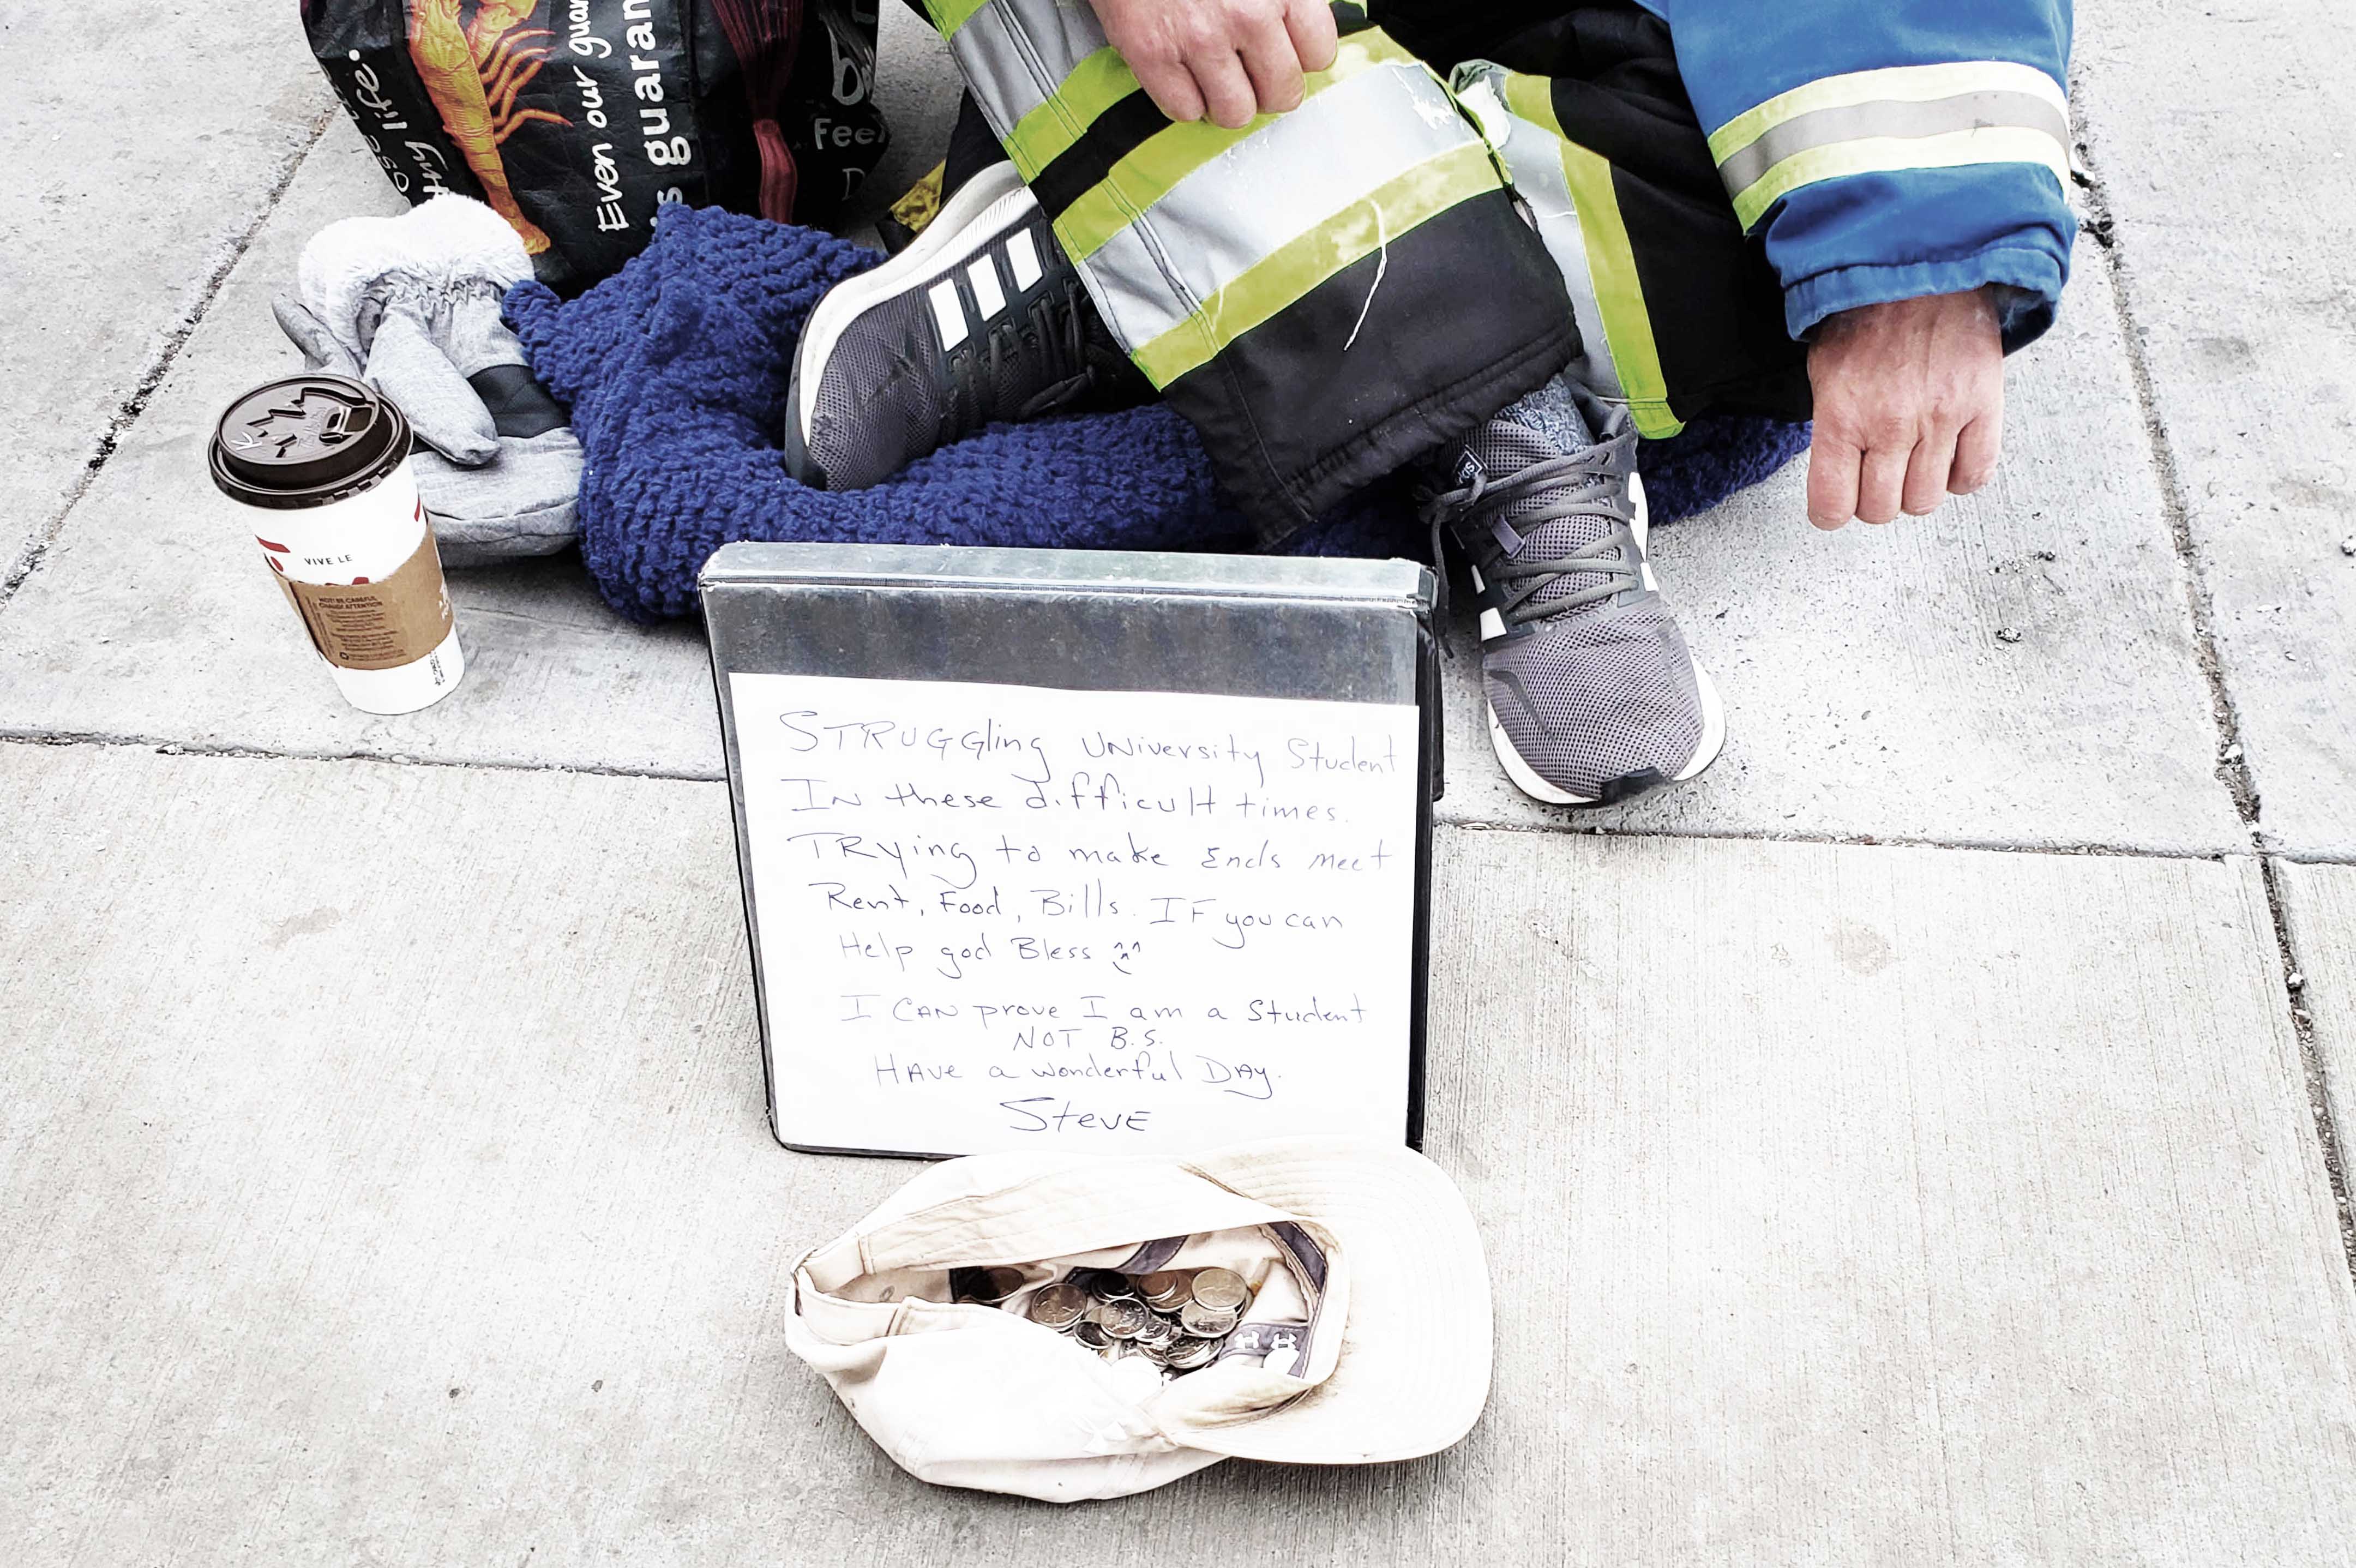 Even our guar
s guaran
my life.
Feel
D
VIVE LE
HOT! BE CAREFUL
STRUGGling UNiversity Student
IN these difficult times.
TRying to make Ends meet
Rent, Food, Bills. IF you can
Help god Bless
I CAN prove I am a Student
NOT B.S.
HAVE a wonderful DAy.
SteVE